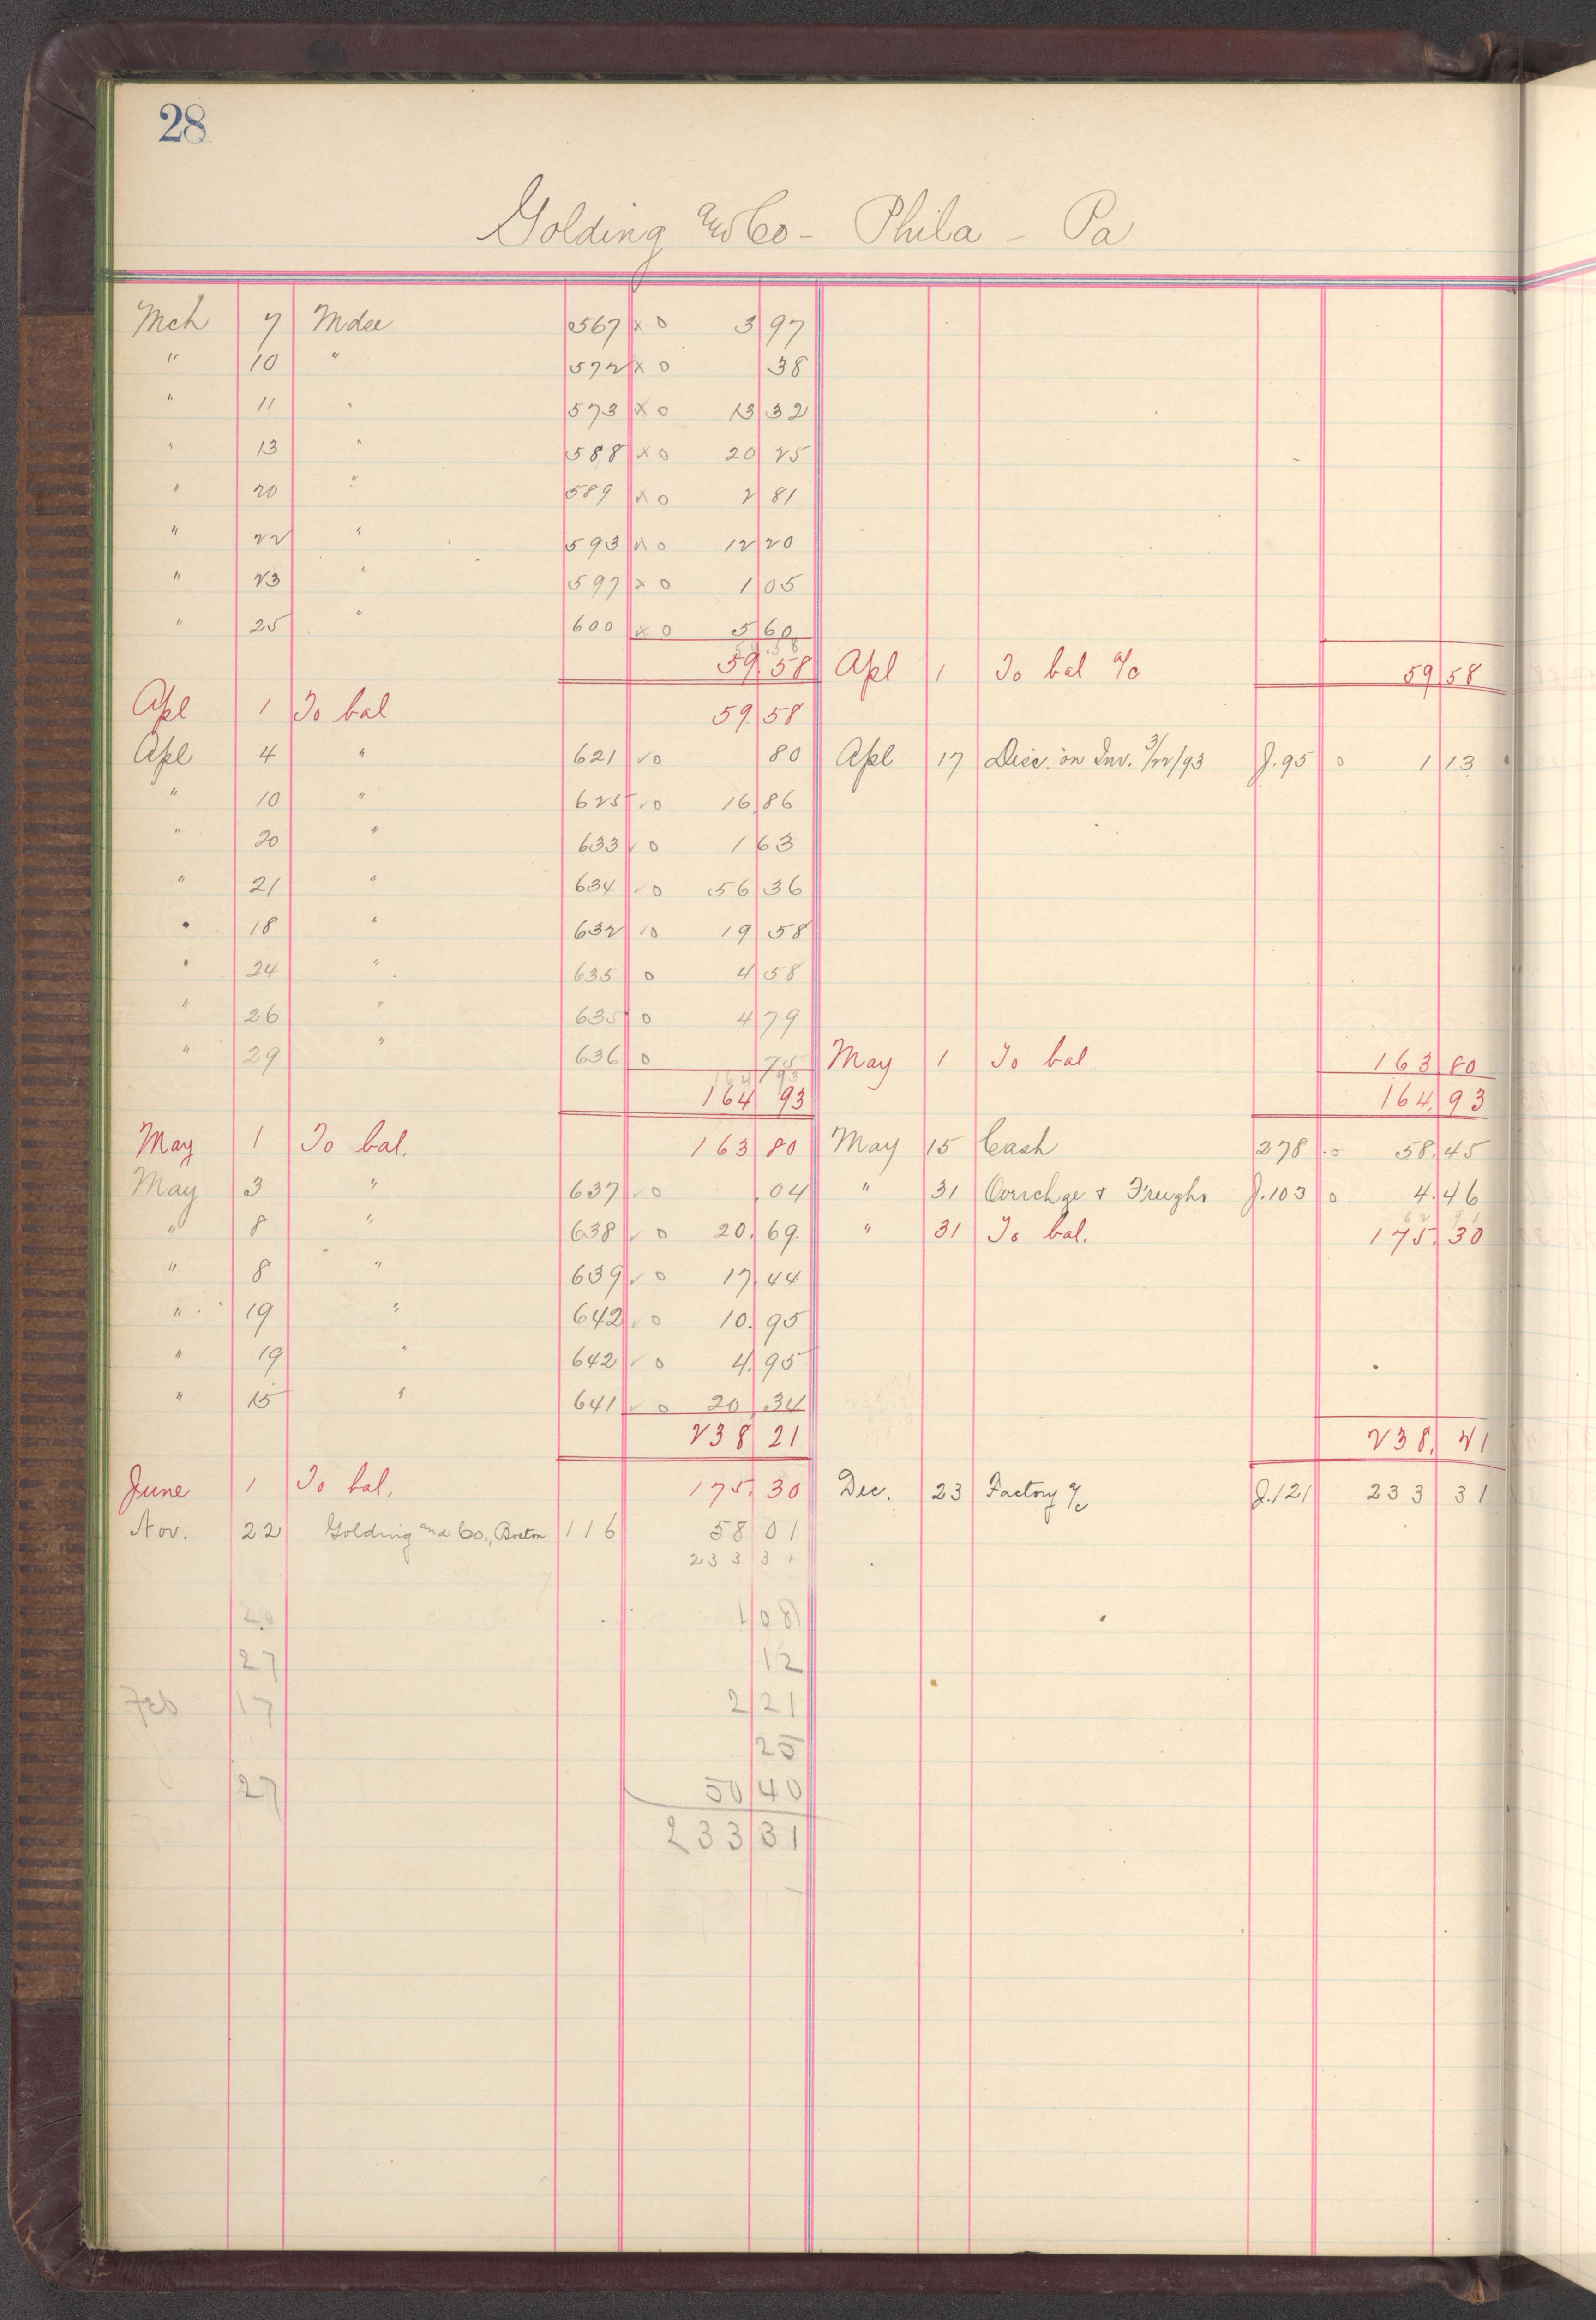 28
Golding and Co - Phila - Pa
Mch 7 Mdse 567 x 0 3 97
" 10 " 572 x 0 38
" 11 " 573 x 0 13 32
" 13 " 588 x 0 20 25
" 20 " 589 x 0 2 81
" 22 " 593 x 0 12 20
" 23 " 597 x 0 1 05
" 25 " 600 x 0 5 60
59.58 Apl 1 To bal a/c 59 58
Apl 1 To bal 59.58
Apl 4 " 621 ✓ 0 80 Apl 17 Disc. on Inv. 3/22/93 J.95 0 1 13
" 10 " 625 ✓ 0 16.86
" 20 " 633 ✓ 0 1 63
" 21 " 634 ✓ 0 56 36
" 18 " 632 ✓ 0 19 58
" 24 " 635 0 4 58
" 26 " 635 0 4 79
" 29 " 636 0 75 May 1 To bal. 163 80
164 93 164.93
May 1 To bal. 163 80 May 15 Cash 278 ✓ 0 58.45
May 3 " 637 ✓ 0 .04 " 31 Overchge & Freight J.103 0 4.46
" 8 " 638 ✓ 0 20.69 " 31 To bal. 175.30
" 8 " 639 ✓ 0 17.44
" 19 " 642 ✓ 0 10.95
" 19 " 642 ✓ 0 4.95
" 15 " 641 ✓ 0 20.34
238 21 238. 21
June 1 To bal. 175.30 Dec. 23 Factory a/c J.121 233 31
Nov. 22 Golding and Co., Boston 116 58 01
233 31
1 08
27 12
Feb 17 2 21
25
27 50 40
233 31